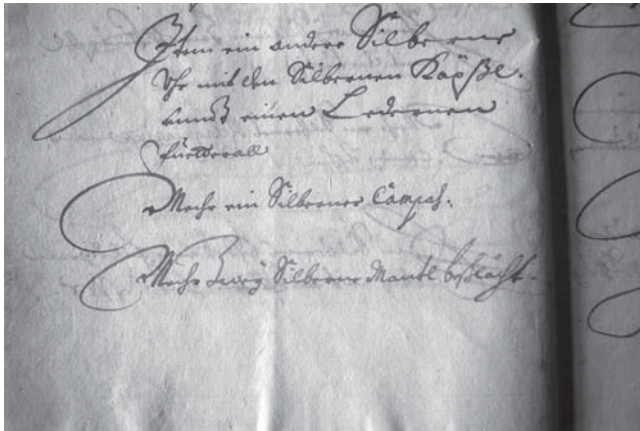 Item ein andere Silberne
Uhr mit den Silbernen Käpßl.
sambt einen Ledernen
fuetterall
Mehr ein Silberner Campas.
Mehr Zwey Silberne Mantl beschlächt.